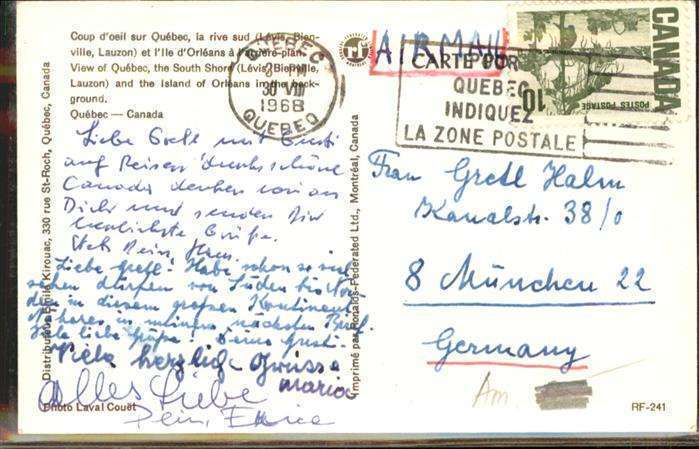 Coup d'oeil sur Québec, la rive sud (Lévis, Bien-
ville, Lauzon) et l'Ile d'Orléans à l'arrière-plan.
View of Québec, the South Shore (Lévis, Bienville,
Lauzon) and the Island of Orléans in the back-
ground.
Québec — Canada
QUEBEC
PM
30 VIII
1968
QUEBEC
rf
AIRMAIL
CARTE POR
QUEBEC
INDIQUEZ
LA ZONE POSTALE
CANADA
POSTES POSTAGE
10
Liebe Gretl mit Gusti
auf Reisen durchs schöne
Canada denken wir an
Dich und senden Dir
herzlichste Grüße.
Stets Dein Hans.
Liebe Gretl! Habe schon so viel
sehen dürfen von Süden bis Nor
den in diesem großen Kontinent.
Näheres in meinem nächsten Brief.
Viele liebe Grüße! Deine Gusti.
Viele herzliche Grüsse
Maria
Alles Liebe
Dein
Frau Gretl Halm
Kanalstr. 38/0
8 München 22
Germany
Am.
Distributeur Emile Kirouac, 330 rue St-Roch, Québec, Canada
Imprimé par Ronalds-Federated Ltd., Montréal, Canada
Photo Laval Couët
RF-241